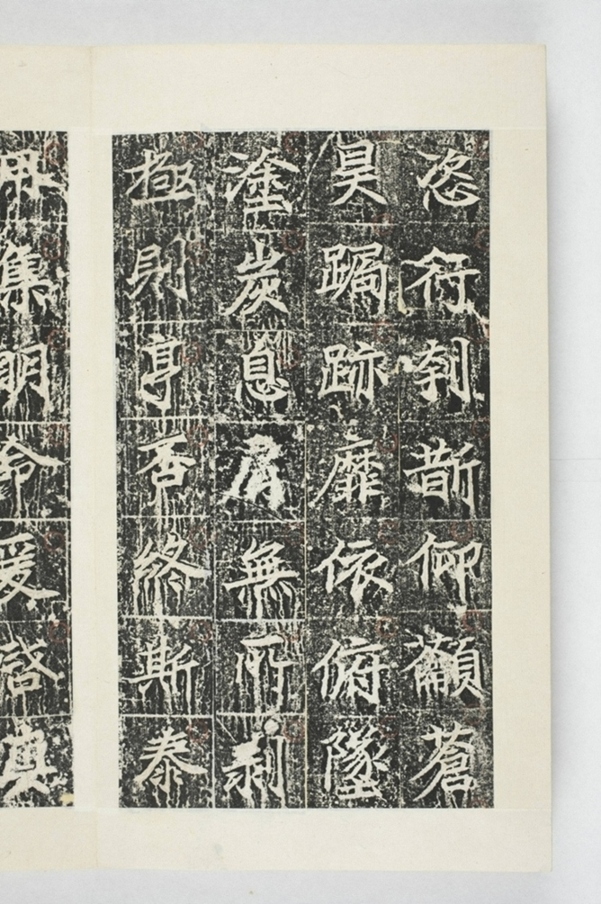 恣行刳斮仰顧蒼
昊跼跡靡依俯墜
塗炭息肩無所剝
極則亨否終斯泰
用集明命爰啓真